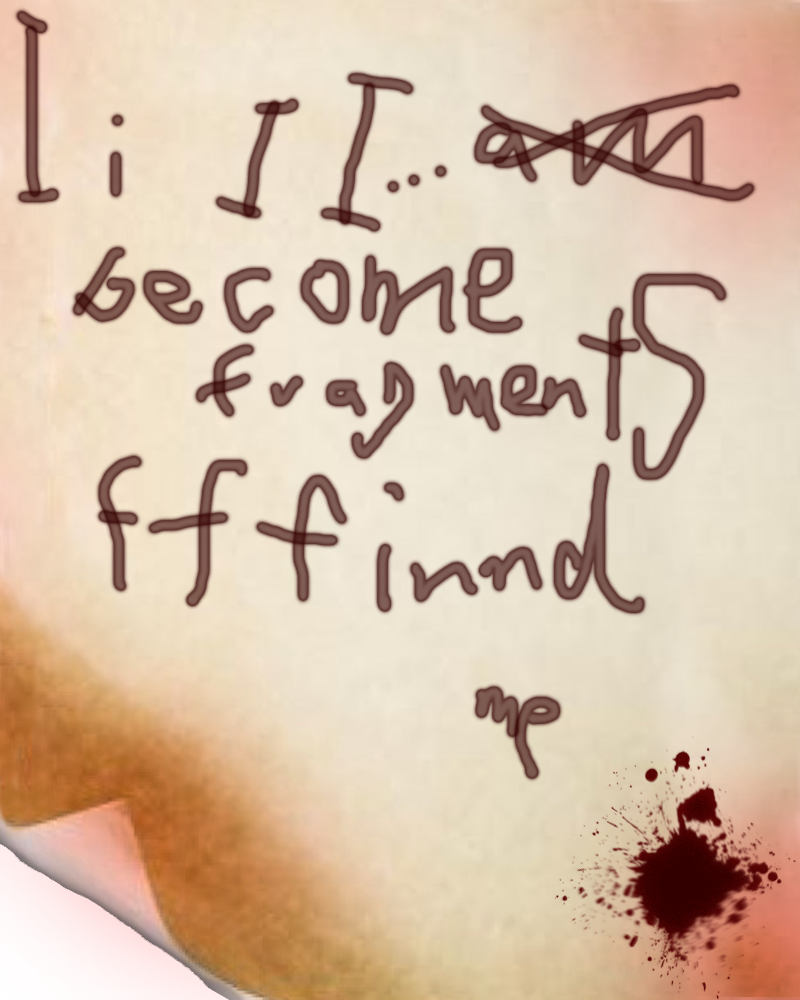 I i I I... am
become
fragmentS
f f f innd
me